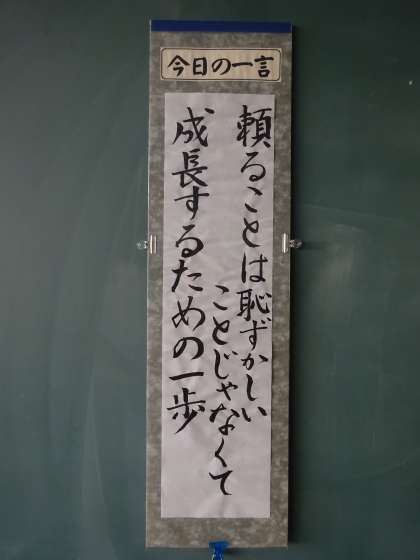 今日の一言
頼ることは恥ずかしい
ことじゃなくて
成長するための一歩